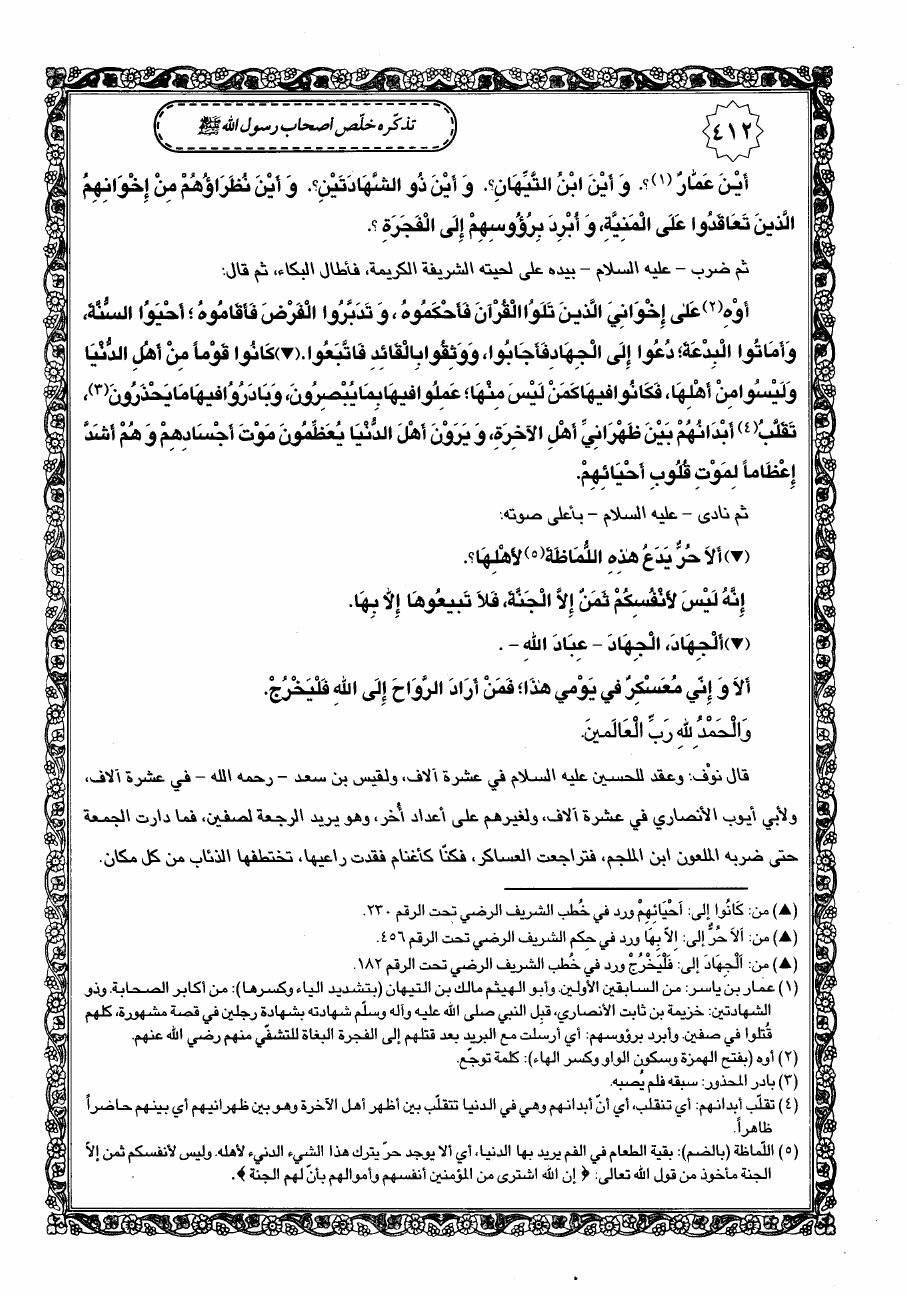 ٤١٢
تذكّره خلّص أصحاب رسول الله ﷺ
أَيْنَ عَمَّارٌ (١)؟. وَ أَيْنَ ابْنُ التَّيِّهَانِ؟. وَ أَيْنَ ذُو الشَّهَادَتَيْنِ؟. وَ أَيْنَ نُظَرَاؤُهُمْ مِنْ إِخْوَانِهِمُ
الَّذِينَ تَعَاقَدُوا عَلَى الْمَنِيَّةِ، وَ أُبْرِدَ بِرُؤُوسِهِمْ إِلَى الْفَجَرَةِ؟.
ثم ضرب – عليه السلام – بيده على لحيته الشريفة الكريمة، فأطال البكاء، ثم قال:
أَوْهِ(٢) عَلىٰ إِخْوَانِيَ الَّذِينَ تَلَوُا الْقُرْآنَ فَأَحْكَمُوهُ، وَ تَدَبَّرُوا الْفَرْضَ فَأَقَامُوهُ؛ أَحْيَوُا السُّنَّةَ،
وَ أَمَاتُوا الْبِدْعَةَ؛ دُعُوا إِلَى الْجِهَادِ فَأَجَابُوا، وَ وَثِقُوا بِالْقَائِدِ فَاتَّبَعُوا. (▼) كَانُوا قَوْماً مِنْ أَهْلِ الدُّنْيَا
وَ لَيْسُوا مِنْ أَهْلِهَا، فَكَانُوا فِيهَا كَمَنْ لَيْسَ مِنْهَا؛ عَمِلُوا فِيهَا بِمَا يُبْصِرُونَ، وَ بَادَرُوا فِيهَا مَا يَحْذَرُونَ(٣)،
تَقَلَّبُ(٤) أَبْدَانُهُمْ بَيْنَ ظَهْرَانَيْ أَهْلِ الآخِرَةِ، وَ يَرَوْنَ أَهْلَ الدُّنْيَا يُعَظِّمُونَ مَوْتَ أَجْسَادِهِمْ وَ هُمْ أَشَدُّ
إِعْظَاماً لِمَوْتِ قُلُوبِ أَحْيَائِهِمْ.
ثم نادى – عليه السلام – بأعلى صوته:
(▼) أَلاَ حُرٌّ يَدَعُ هٰذِهِ اللُّمَاظَةَ(٥) لأَهْلِهَا؟.
إِنَّهُ لَيْسَ لأَنْفُسِكُمْ ثَمَنٌ إِلاَّ الْجَنَّةَ، فَلاَ تَبِيعُوهَا إِلاَّ بِهَا.
(▼) أَلْجِهَادَ، الْجِهَادَ – عِبَادَ اللهِ – .
أَلاَ وَ إِنِّي مُعَسْكِرٌ فِي يَوْمِي هٰذَا؛ فَمَنْ أَرَادَ الرَّوَاحَ إِلَى اللهِ فَلْيَخْرُجْ.
وَالْحَمْدُ لِلهِ رَبِّ الْعَالَمِينَ.
قال نَوْف: وعقد للحسين عليه السلام في عشرة آلاف، ولقيس بن سعد – رحمه الله – في عشرة آلاف،
ولأبي أيوب الأنصاري في عشرة آلاف، ولغيرهم على أعداد أُخر، وهو يريد الرجعة لصفين، فما دارت الجمعة
حتى ضربه الملعون ابن الملجم، فتراجعت العساكر، فكنّا كأغنام فقدت راعيها، تختطفها الذئاب من كل مكان.
(▲) من: كَانُوا إلى: أَحْيَائِهِمْ ورد في خُطب الشريف الرضي تحت الرقم ٢٣٠.
(▲) من: أَلاَ حُرٌّ إلى: إِلاَّ بِهَا ورد في حِكم الشريف الرضي تحت الرقم ٤٥٦.
(▲) من: أَلْجِهَادَ إلى: فَلْيَخْرُجْ ورد في خُطب الشريف الرضي تحت الرقم ١٨٢.
(١) عمار بن ياسر: من السابقين الأولين. وأبو الهيثم مالك بن التيهان (بتشديد الياء وكسرها): من أكابر الصحابة. وذو
الشهادتين: خزيمة بن ثابت الأنصاري، قبِل النبي صلى الله عليه وآله وسلّم شهادته بشهادة رجلين في قصة مشهورة، كلهم
قُتلوا في صفين. وأبرد برؤوسهم: أي أرسلت مع البريد بعد قتلهم إلى الفجرة البغاة للتشفّي منهم رضي الله عنهم.
(٢) أوه (بفتح الهمزة وسكون الواو وكسر الهاء): كلمة توجّع.
(٣) بادر المحذور: سبقه فلم يُصبه.
(٤) تقلّب أبدانهم: أي تنقلب، أي أنّ أبدانهم وهي في الدنيا تتقلّب بين أظهر أهل الآخرة وهو بين ظهرانيهم أي بينهم حاضراً
ظاهراً.
(٥) اللّماظة (بالضم): بقية الطعام في الفم يريد بها الدنيا، أي ألا يوجد حرّ يترك هذا الشيء الدنيء لأهله. وليس لأنفسكم ثمن إلاّ
الجنة مأخوذ من قول الله تعالى: ﴿ إن الله اشترى من المؤمنين أنفسهم وأموالهم بأنّ لهم الجنة ﴾.